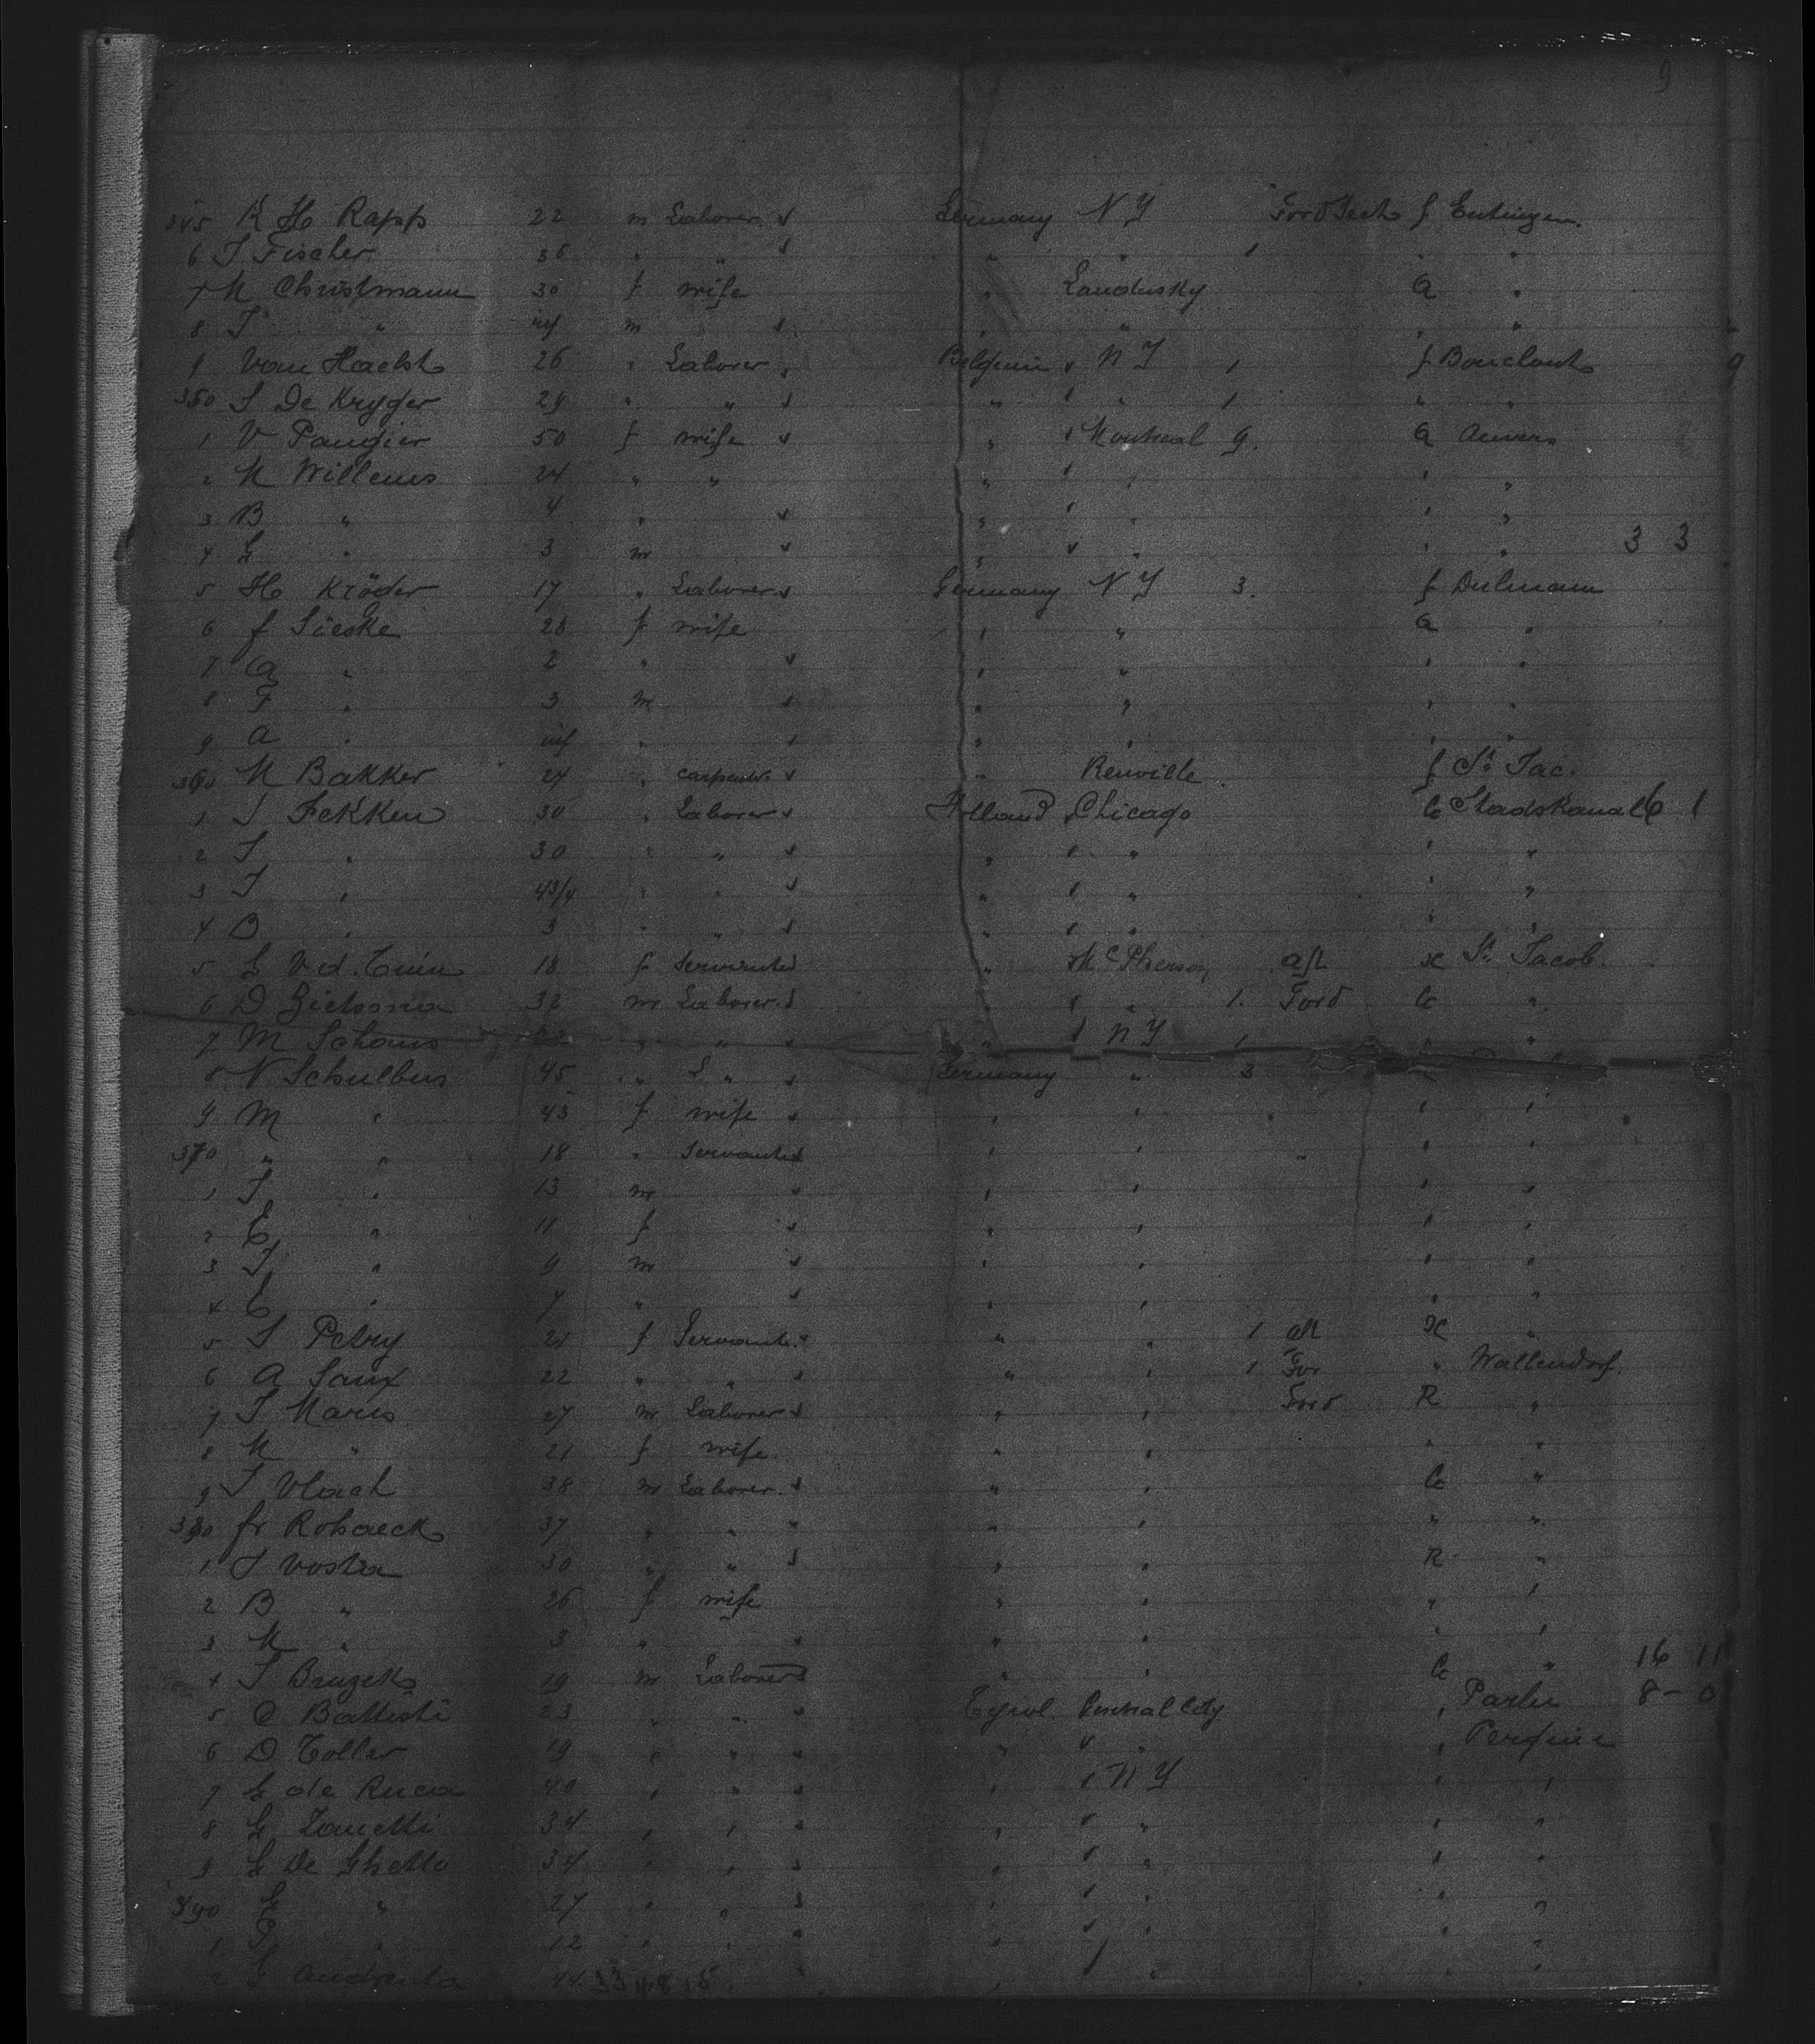 9
345 K H Rapp 22 m Laborer s Germany N Y Ford Deck f Eutingen.
6 J Fischer 36 " " s " " 1 " "
7 M Christmann 30 f wife " Sandusky a "
8 J " inf m s " " " "
9 Van Hackt 26 " Laborer s Belgium s N Y 1 f Bouclants 9
350 S De Kryger 29 " " s " s " 1 " "
1 V Paugier 50 f wife s " s Montreal 9. a Anvers
2 M Willems 24 " " " s " " "
3 B " 4 " s " s " " "
4 G " 3 m s " s " " " 3 3
5 H Kröder 17 " Laborer s Germany N Y 3. f Dulmann
6 f Sieske 28 f wife " " a "
7 A " 2 " s " " " "
8 F " 3 m s " " " "
9 A " inf " s " " " "
360 M Bakker 24 " carpenter s " Renville f St Jac.
1 J Fekken 30 " Laborer s Holland s Chicago C Stadskanal 6 1
2 J " 30 " " s " s " " "
3 J " 43/4 " " s " s " " "
4 B " 3 " " s " s " " "
5 G V d. Tuin 18 f Servante s " s McPherson aft H St Jacob.
6 D Zietsma 32 m Laborer s s " 1. Ford C "
7 M Schaus " " s " s N Y 1 " "
8 N Schulbus 45 " L " s Germany " 3
9 M " 43 f wife s " " " "
370 " " 18 " Servante s " " " "
1 J " 13 m s " " " "
2 E " 11 f s " " " "
3 J " 9 m s " " " "
4 E " 7 " s " " " "
5 S Petry 21 f Servante s " " 1 aft H "
6 A Saux 22 " " s " " 1 For " Wallendorf.
7 J Maris 27 m Laborer s " " Ford R "
8 M " 21 f wife. " " " "
9 J Vlach 38 m Laborer s " " C "
380 fr Rohaeck 37 " " " " " " "
1 J Vostra 30 " " s " " R "
2 B " 26 f wife " " " "
3 M " 3 " " " " " "
4 J Bruzek 19 m Laborer s " " C " 16 11
5 C Battisti 23 " " " Tyrol. Central City " 8 - 0
6 D Toller 19 " " " " s " " Pergine
7 G de Ruca 40 " " s " s N Y " "
8 G Zanetti 34 " " " " s " " "
9 G De Ghetto 34 " " s " s " " "
390 G " 27 " " s " s " " "
1 " 12 " " " " s " " "
2 G 44